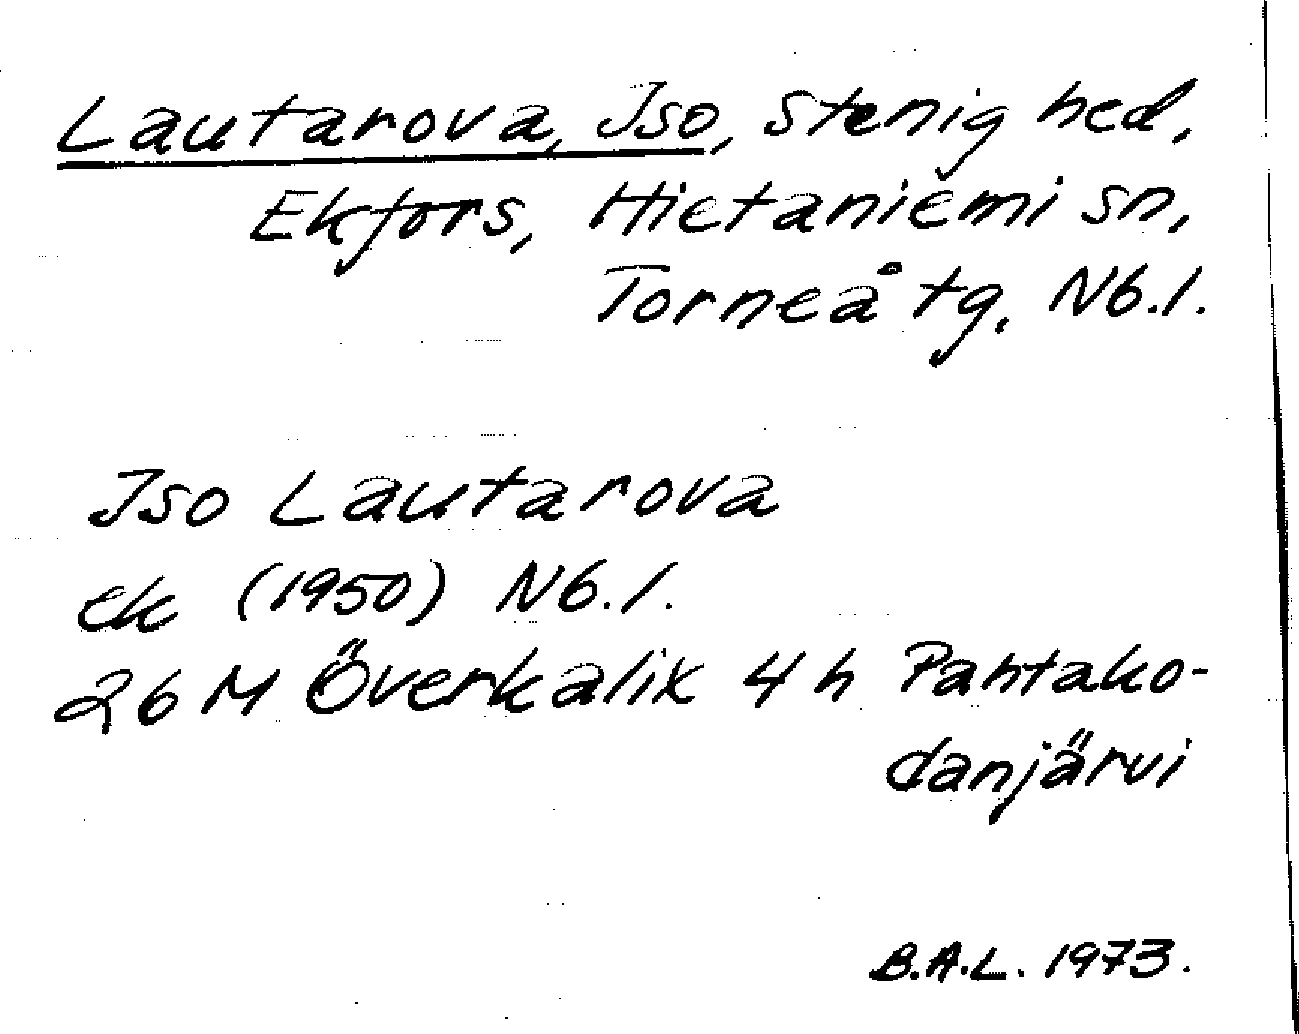 Lautarova, Iso, Stenig hed,
Ekfors, Hietaniemi sn,
Torneå tg, Nb.l.
Iso Lautarova
ek (1950) Nb.l.
26 M Överkalix 4 h Pahtako-
danjärvi
B.A.L. 1973.